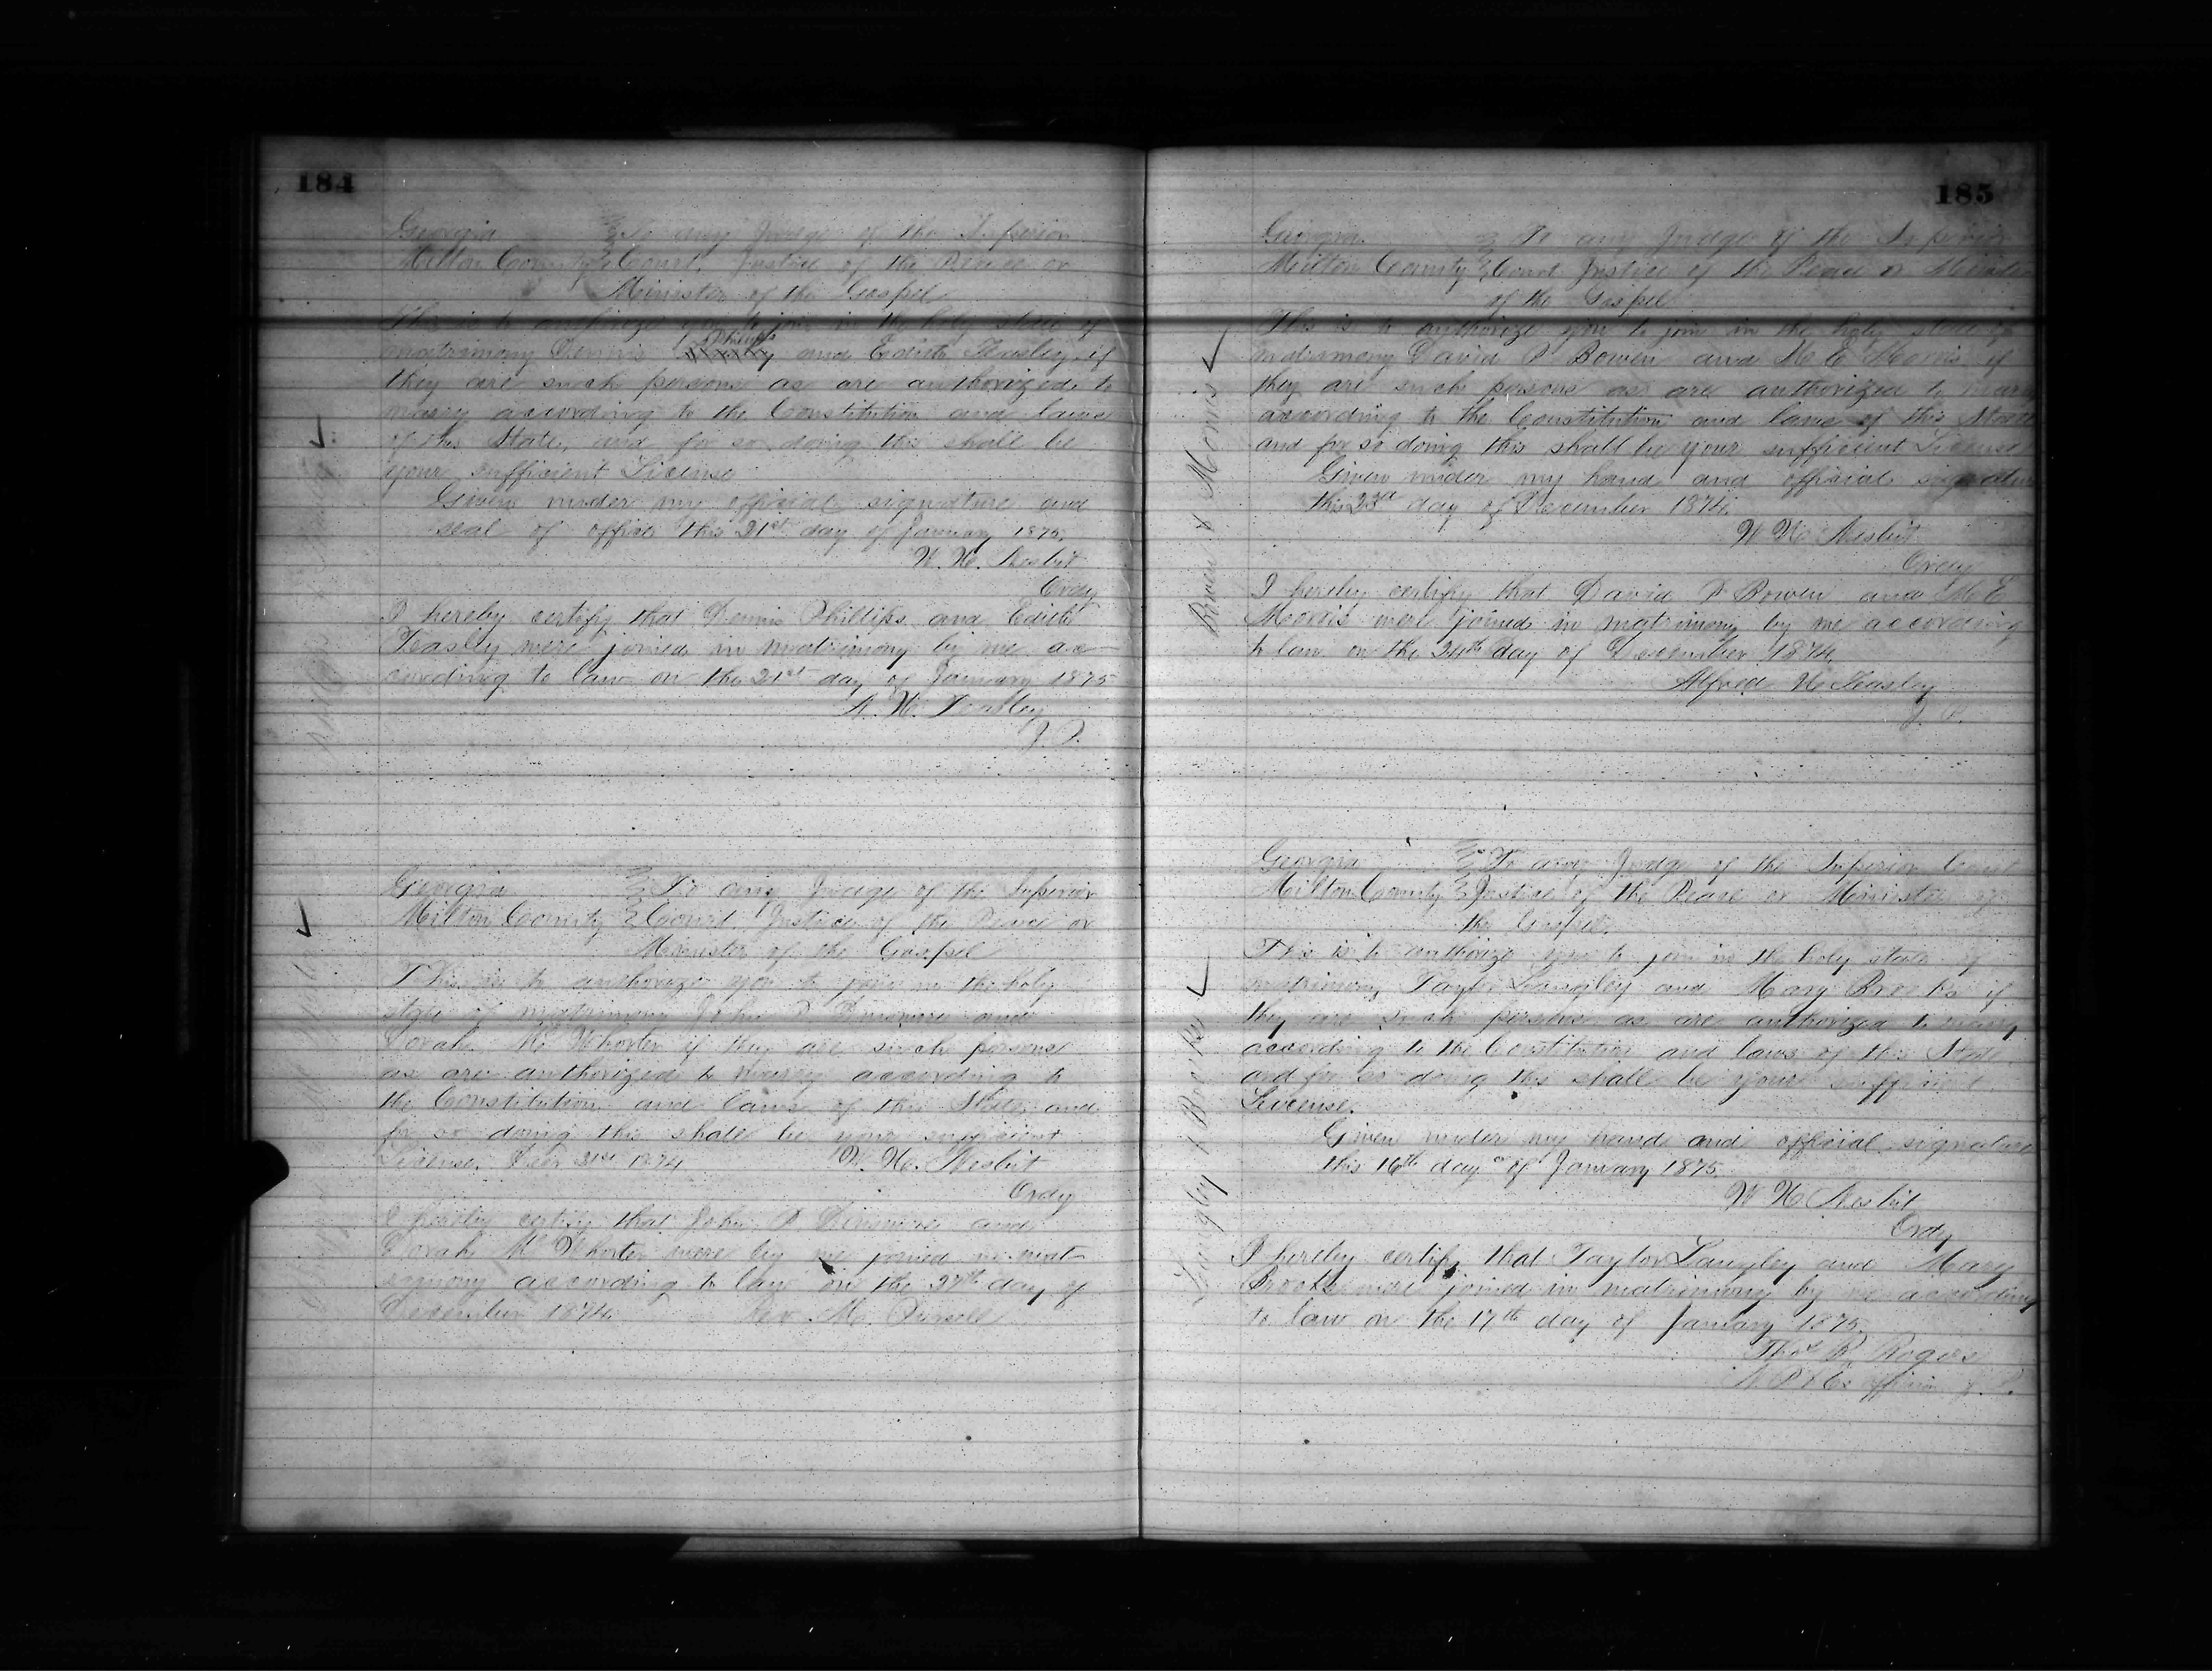 184
Georgia To any Judge of the Superior
Milton County Court, Justice of the Peace or
Minister of the Gospel
This is to authorize you to join in the holy state of
matrimony Dennis Phillips and Edith Teasley if
they are such persons as are authorized to
marry according to the Constitution and laws
of this State, and for so doing this shall be
your sufficient License
Given under my official signature and
seal of office this 21st day of January 1875.
W. H. Nesbit
Ordy
I hereby certify that Dennis Phillips and Edith
Teasley were joined in matrimony by me ac-
cording to law on the 21st day of January 1875
A. H. Teasley
J. P.
Georgia To any Judge of the Superior
Milton County Court Justice of the Peace or
Minister of the Gospel
This is to authorize you to join in the holy
state of matrimony John P and
Sarah McWhorter if they are such persons
as are authorized to marry according to
the Constitution and laws of this State and
for so doing this shall be your sufficient
License. Dec 21st 1874 W. H. Nesbit
Ordy
I hereby certify that John P Dinsmore and
Sarah McWhorter were by me joined in mat-
rimony according to law on the 27th day of
December 1874. Rev. M.
185
Bowen & Morris
Georgia To any Judge of the Superior
Milton County Court Justice of the Peace or Minister
of the Gospel
This is to authorize you to join in the holy state of
matrimony David P Bowen and M. E. Morris if
they are such persons as are authorized to marry
according to the Constitution and laws of this State
and for so doing this shall be your sufficient License
Given under my hand and official signature
this 23rd day of December 1874.
W H Nesbit
Ordy
I hereby certify that David P Bowen and M E
Morris were joined in matrimony by me according
to law on the 24th day of December 1874.
Alfred H Teasley
J. P.
Langley & Brooks
Georgia To any Judge of the Superior Court
Milton County Justice of the Peace or Minister of
the Gospel.
This is to authorize you to join in the holy state of
matrimony Taylor Langley and Mary Brooks if
they are such persons as are authorized to marry
according to the Constitution and laws of this State
and for so doing this shall be your sufficient
License.
Given under my hand and official signature
this 16th day of January 1875.
W H Nesbit
Ordy
I hereby certify that Taylor Langley and Mary
Brooks were joined in matrimony by me according
to law on the 17th day of January 1875.
Thos R Rogers
N. P. & Ex officio J. P.